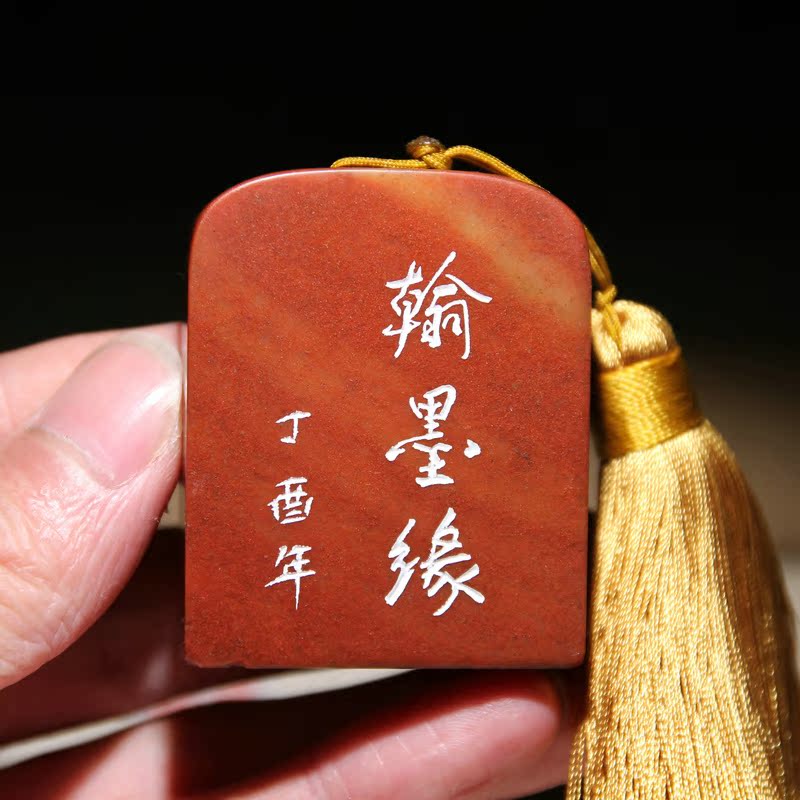 翰墨缘
丁酉年